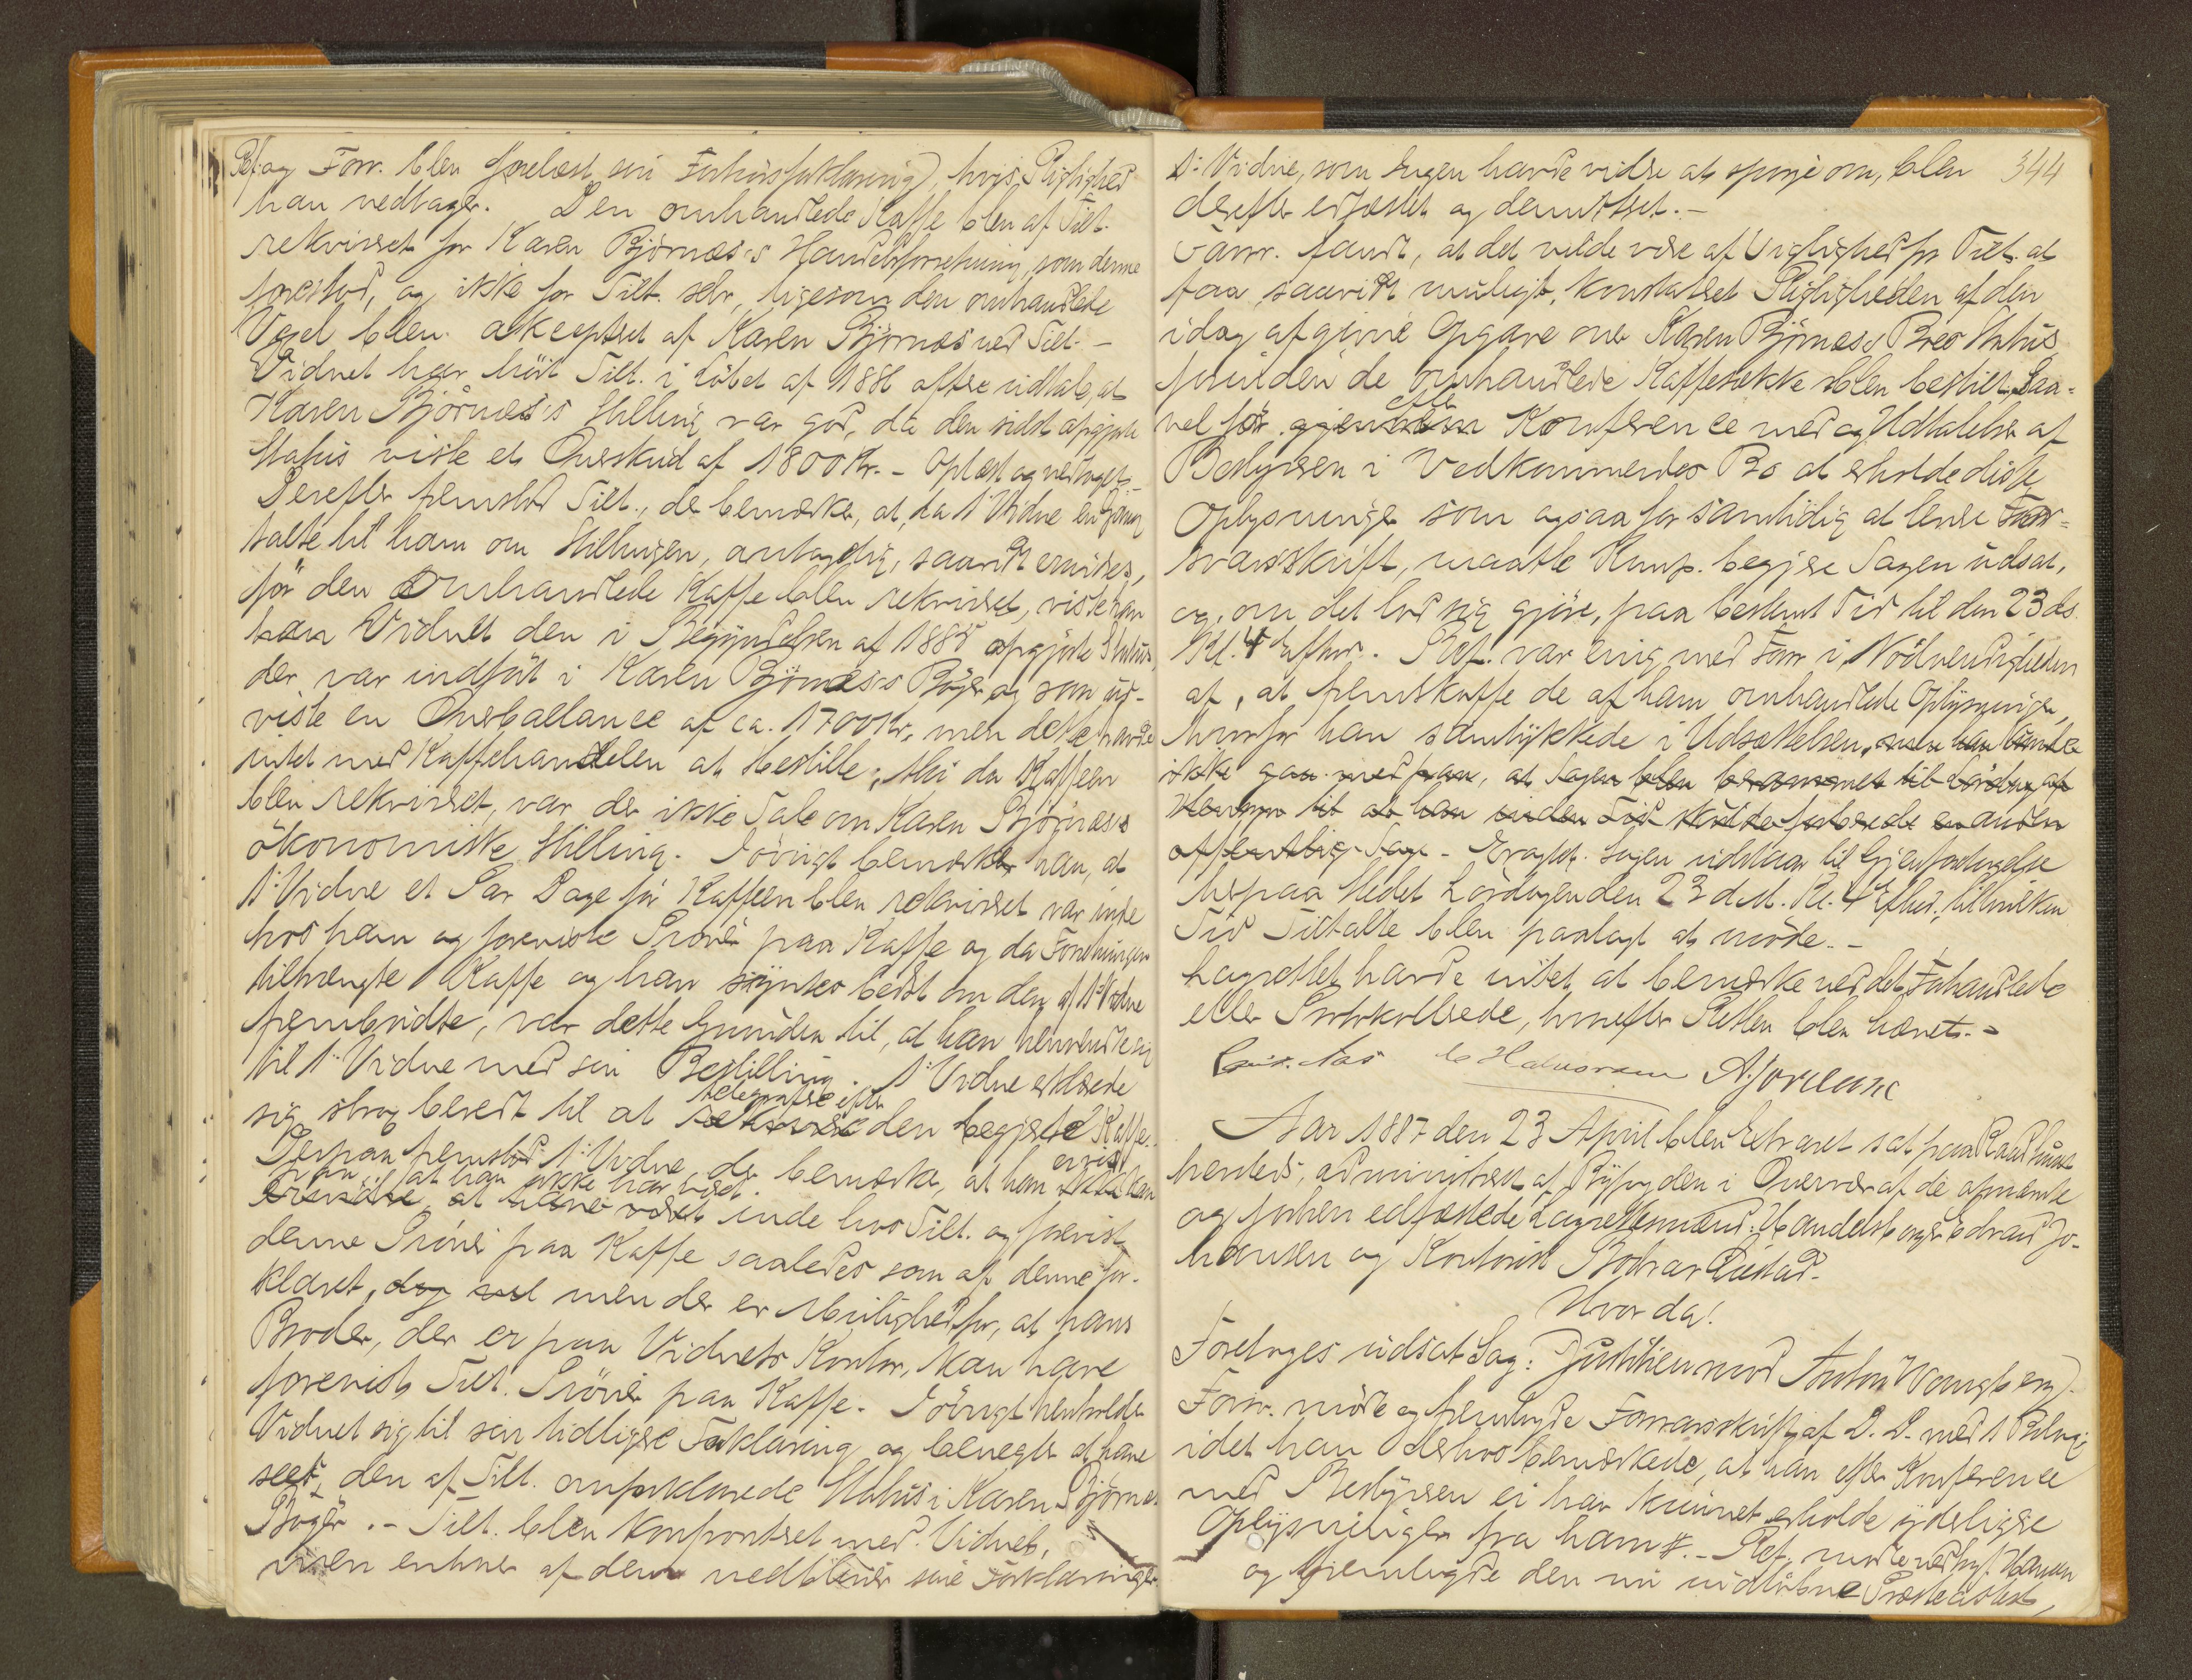 Ref. og Forr. blev forelæst sin Forhørsforklaring), hvis Rigtighed
han vedtager. Den omhandlede Kaffe blev af Tilt.
rekvireret for Karen Bjørnæs's Handelsforretning, som denne
forestod, og ikke for Tilt. selv, ligesom den omhandlede
Vexel blev akcepteret af Karen Bjørnæs ved Tilt. –
Vidnet har hørt Tilt. i Løbet af 1886 oftere udtale, at
Karen Bjørnæs's Stilling var god, da den sidst opgjorte
Status viste et Overskud af 1800 Kr. – Oplæst og vedtaget. –
Derefter fremstod Tilt., der bemærker, at, da 1' Vidne en Gang
talte til ham om Stillingen, antagelig, saavidt erindres,
før den omhandlede Kaffe blev rekvireret, viste han
Vidnet den i Begyndelsen af 1885 opgjorte Status,
der var indført i Karen Bjørnæs's Bøger og som ud-
viste en Overballance af ca. 1700 Kr., men dette havde
intet med Kaffehandelen at bestille; thi da Kaffeen
blev rekvireret, var der ikke Tale om Karen Bjørnæs's
økonomiske Stilling. Iøvrigt bemærker han, at
1' Vidne et Par Dage før Kaffeen blev rekvireret var inde
hos ham og foreviste Prøver paa Kaffe og da Forretningen
tiltrængte Kaffe og han syntes bedst om den af 1' Vidne
frembudte, var dette Grunden til, at han henvendte sig
til 1' Vidne med sin Bestilling. 1' Vidne erklærede
telegrafere efter
sig strax beredt til at rekvirere den begjærede Kaffe. –
Derpaa fremstod 1' Vidne, der bemærker, at han kan
at han ikke har været
erindre at have været inde hos Tilt. og forevist
denne Prøver paa Kaffe saaledes som af denne for-
klaret, men der er Mulighed for, at hans
Broder, der er paa Vidnets Kontor, kan have
forevist Tilt. Prøver paa Kaffe. Iøvrigt henholder
Vidnet sig til sin tidligere Forklaring og benegter at have
seet den af Tilt. omforklarede Status i Karen Bjørnæs
Bøger. – Tilt. blev konfronteret med Vidnet,
men enhver af dem vedblev sine Forklaringer.
344
1' Vidne, som Ingen havde videre at spørge om, blev
derefter edfæstet og demitteret. –
Forr. fandt, at det vilde være af Vigtighed for Tilt. at
faa, saavidt muligt, konstateret Rigtigheden af den
idag afgivne Opgave over Karen Bjørnæs's Boes Status
forinden de omhandlede Kaffesække blev bestilt. Saa-
efter
vel for gjennem Konference med og Udtalelse af
Bestyreren i Vedkommendes Bo at erholde disse
Oplysninger som ogsaa for samtidig at levere For-
svarsskrift, maatte Komp. begjære Sagen udsat,
og, om det lod sig gjøre, paa bestemt Tid til den 23 ds.
Kl. 4 Efterm. Ref. var enig med Forr. i Nødvendigheden
af, at fremskaffe de af ham omhandlede Oplysninger,
hvorfor han samtykkede i Udsættelsen, men han kunde
ikke gaa med paa, at Sagen blev berammet til Lørdag af
Hensyn til at han inden Tid skulde forberede en anden
offentlig Sag. – Eragtet: Sagen udstaar til Gjenforetagelse
herpaa Stedet Lørdagen den 23 d. M. Kl. 4 Efterm., til hvilken
Tid Tiltalte blev paalagt at møde. –
Lagrettet havde intet at bemærke ved det Forhandlede
eller Protokollerede, hvorefter Retten blev hævet. –
Halvorsen
Aar 1887 den 23 April blev Extraret sat paa Raadhuset
hersteds, administreret af Byfogden i Overvær af de opnævnte
og forhen edfæstede Lagrettesmænd: Handelsborger Edvard Jo-
hansen og Kontorist Bodvar Rustad.
Hvor da!
Foretoges udsat Sag: Justitien mod Anton Wangberg.
Forr. møder og fremlagde Forsvarsskrift af D. D. med 1 Bilag,
idet han derhos bemærkede, at han efter Konference
med Bestyreren ei har kunnet erholde yderligere
Oplysninger fra ham. – Ref. møder ved Hansen
og fremlagde den nu indløbne Præsteattest,